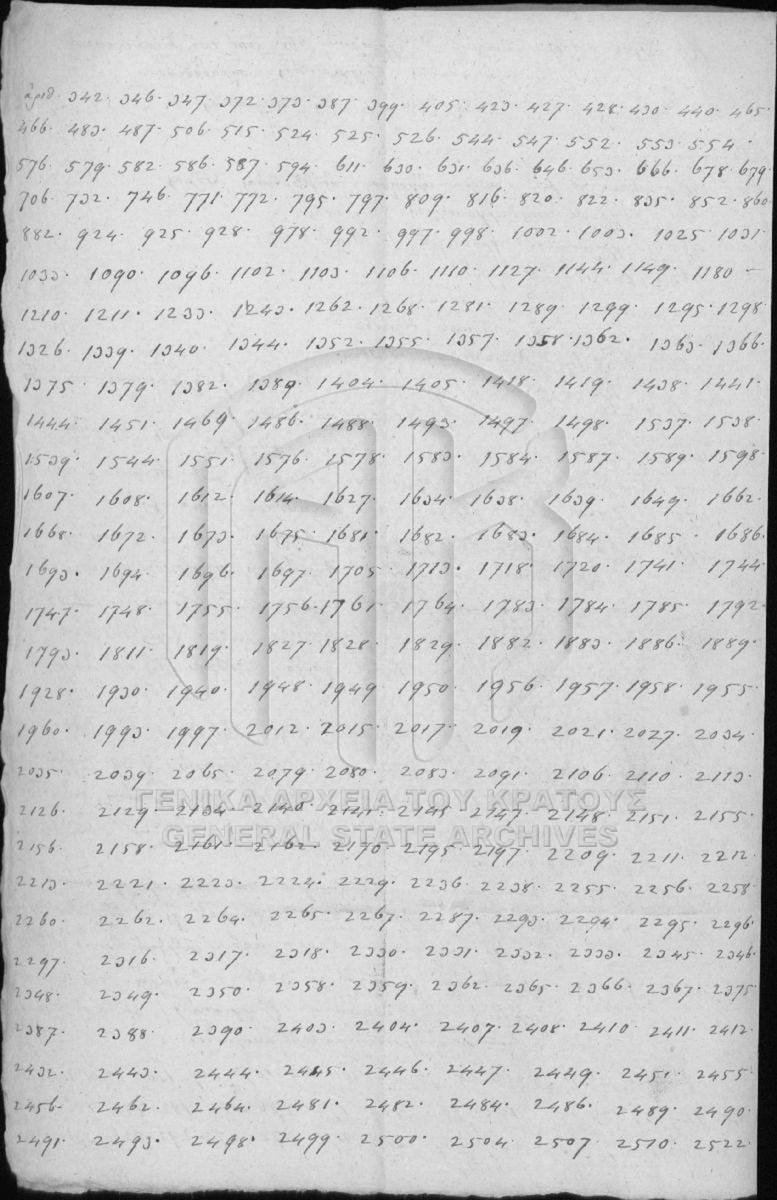 ἀριθ. 342. 346. 347. 372. 373. 387. 399. 405. 423. 427. 428. 430. 440. 465.
466. 483. 487. 506. 515. 524. 525. 526. 544. 547. 552. 553. 554.
576. 579. 582. 586. 587. 594. 611. 630. 631. 636. 646. 653. 666. 678. 679.
706. 732. 746. 771. 772. 795. 797. 809. 816. 820. 822. 835. 852. 860
882. 924. 925. 928. 978. 992. 997. 998. 1002. 1003. 1025. 1031.
1033. 1090. 1096. 1102. 1103. 1106. 1110. 1127. 1144. 1149. 1180 —
1210. 1211. 1233. 1243. 1262. 1268. 1281. 1289. 1299. 1295. 1298.
1326. 1339. 1340. 1344. 1352. 1355. 1357. 1358. 1362. 1363. 1366.
1375. 1379. 1382. 1389. 1404. 1405. 1418. 1419. 1438. 1441.
1444. 1451. 1469. 1486. 1488. 1493. 1497. 1498. 1537. 1538.
1539. 1544. 1551. 1576. 1578. 1583. 1584. 1587. 1589. 1598.
1607. 1608. 1612. 1614. 1627. 1634. 1638. 1639. 1649. 1662.
1668. 1672. 1673. 1675. 1681. 1682. 1683. 1684. 1685. 1686.
1693. 1694. 1696. 1697. 1705. 1713. 1718. 1720. 1741. 1744
1747. 1748. 1755. 1756. 1761. 1764. 1783. 1784. 1785. 1792.
1793. 1811. 1819. 1827. 1828. 1829. 1882. 1883. 1886. 1889.
1928. 1930. 1940. 1948. 1949. 1950. 1956. 1957. 1958. 1955.
1960. 1993. 1997. 2012. 2015. 2017. 2019. 2021. 2027. 2034.
2035. 2039. 2065. 2079. 2080. 2083. 2091. 2106. 2110. 2113.
2126. 2129. 2134. 2140. 2141. 2145. 2147. 2148. 2151. 2155.
ΓΕΝΙΚΑ ΑΡΧΕΙΑ ΤΟΥ ΚΡΑΤΟΥΣ
GENERAL STATE ARCHIVES
2156. 2158. 2161. 2162. 2170. 2195. 2197. 2209. 2211. 2212.
2213. 2221. 2223. 2224. 2229. 2236. 2238. 2255. 2256. 2258.
2260. 2262. 2264. 2265. 2267. 2287. 2293. 2294. 2295. 2296.
2297. 2316. 2317. 2318. 2330. 2331. 2332. 2333. 2345. 2346.
2348. 2349. 2350. 2358. 2359. 2362. 2365. 2366. 2367. 2375
2387. 2388. 2390. 2403. 2404. 2407. 2408. 2410. 2411. 2412.
2432. 2443. 2444. 2445. 2446. 2447. 2449. 2451. 2455.
2456. 2462. 2464. 2481. 2482. 2484. 2486. 2489. 2490.
2491. 2493. 2498. 2499. 2500. 2504. 2507. 2510. 2522.